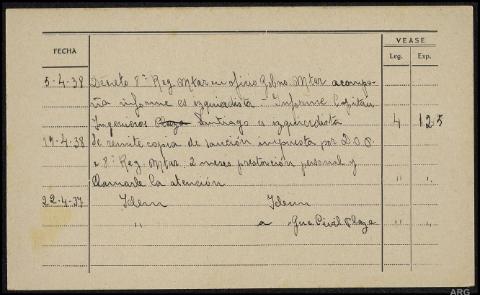 VEASE
FECHA
Leg. Exp.
5-4-38 Decreto 8ª Reg. Mtar en oficio Gobno. Mtar acompa-
ña informe es izquierdista - Informe Capitan
Ingenieros Plaza Santiago es izquierdista 4 125
19-4-38 Se remite copia de sanción impuesta por D.O.P.
e 8ª Reg. Mtar. 2 meses prestación personal y
llamarle la atención " "
22-4-37 Idem Idem
" a Gua Civil Plaza " "
ARG